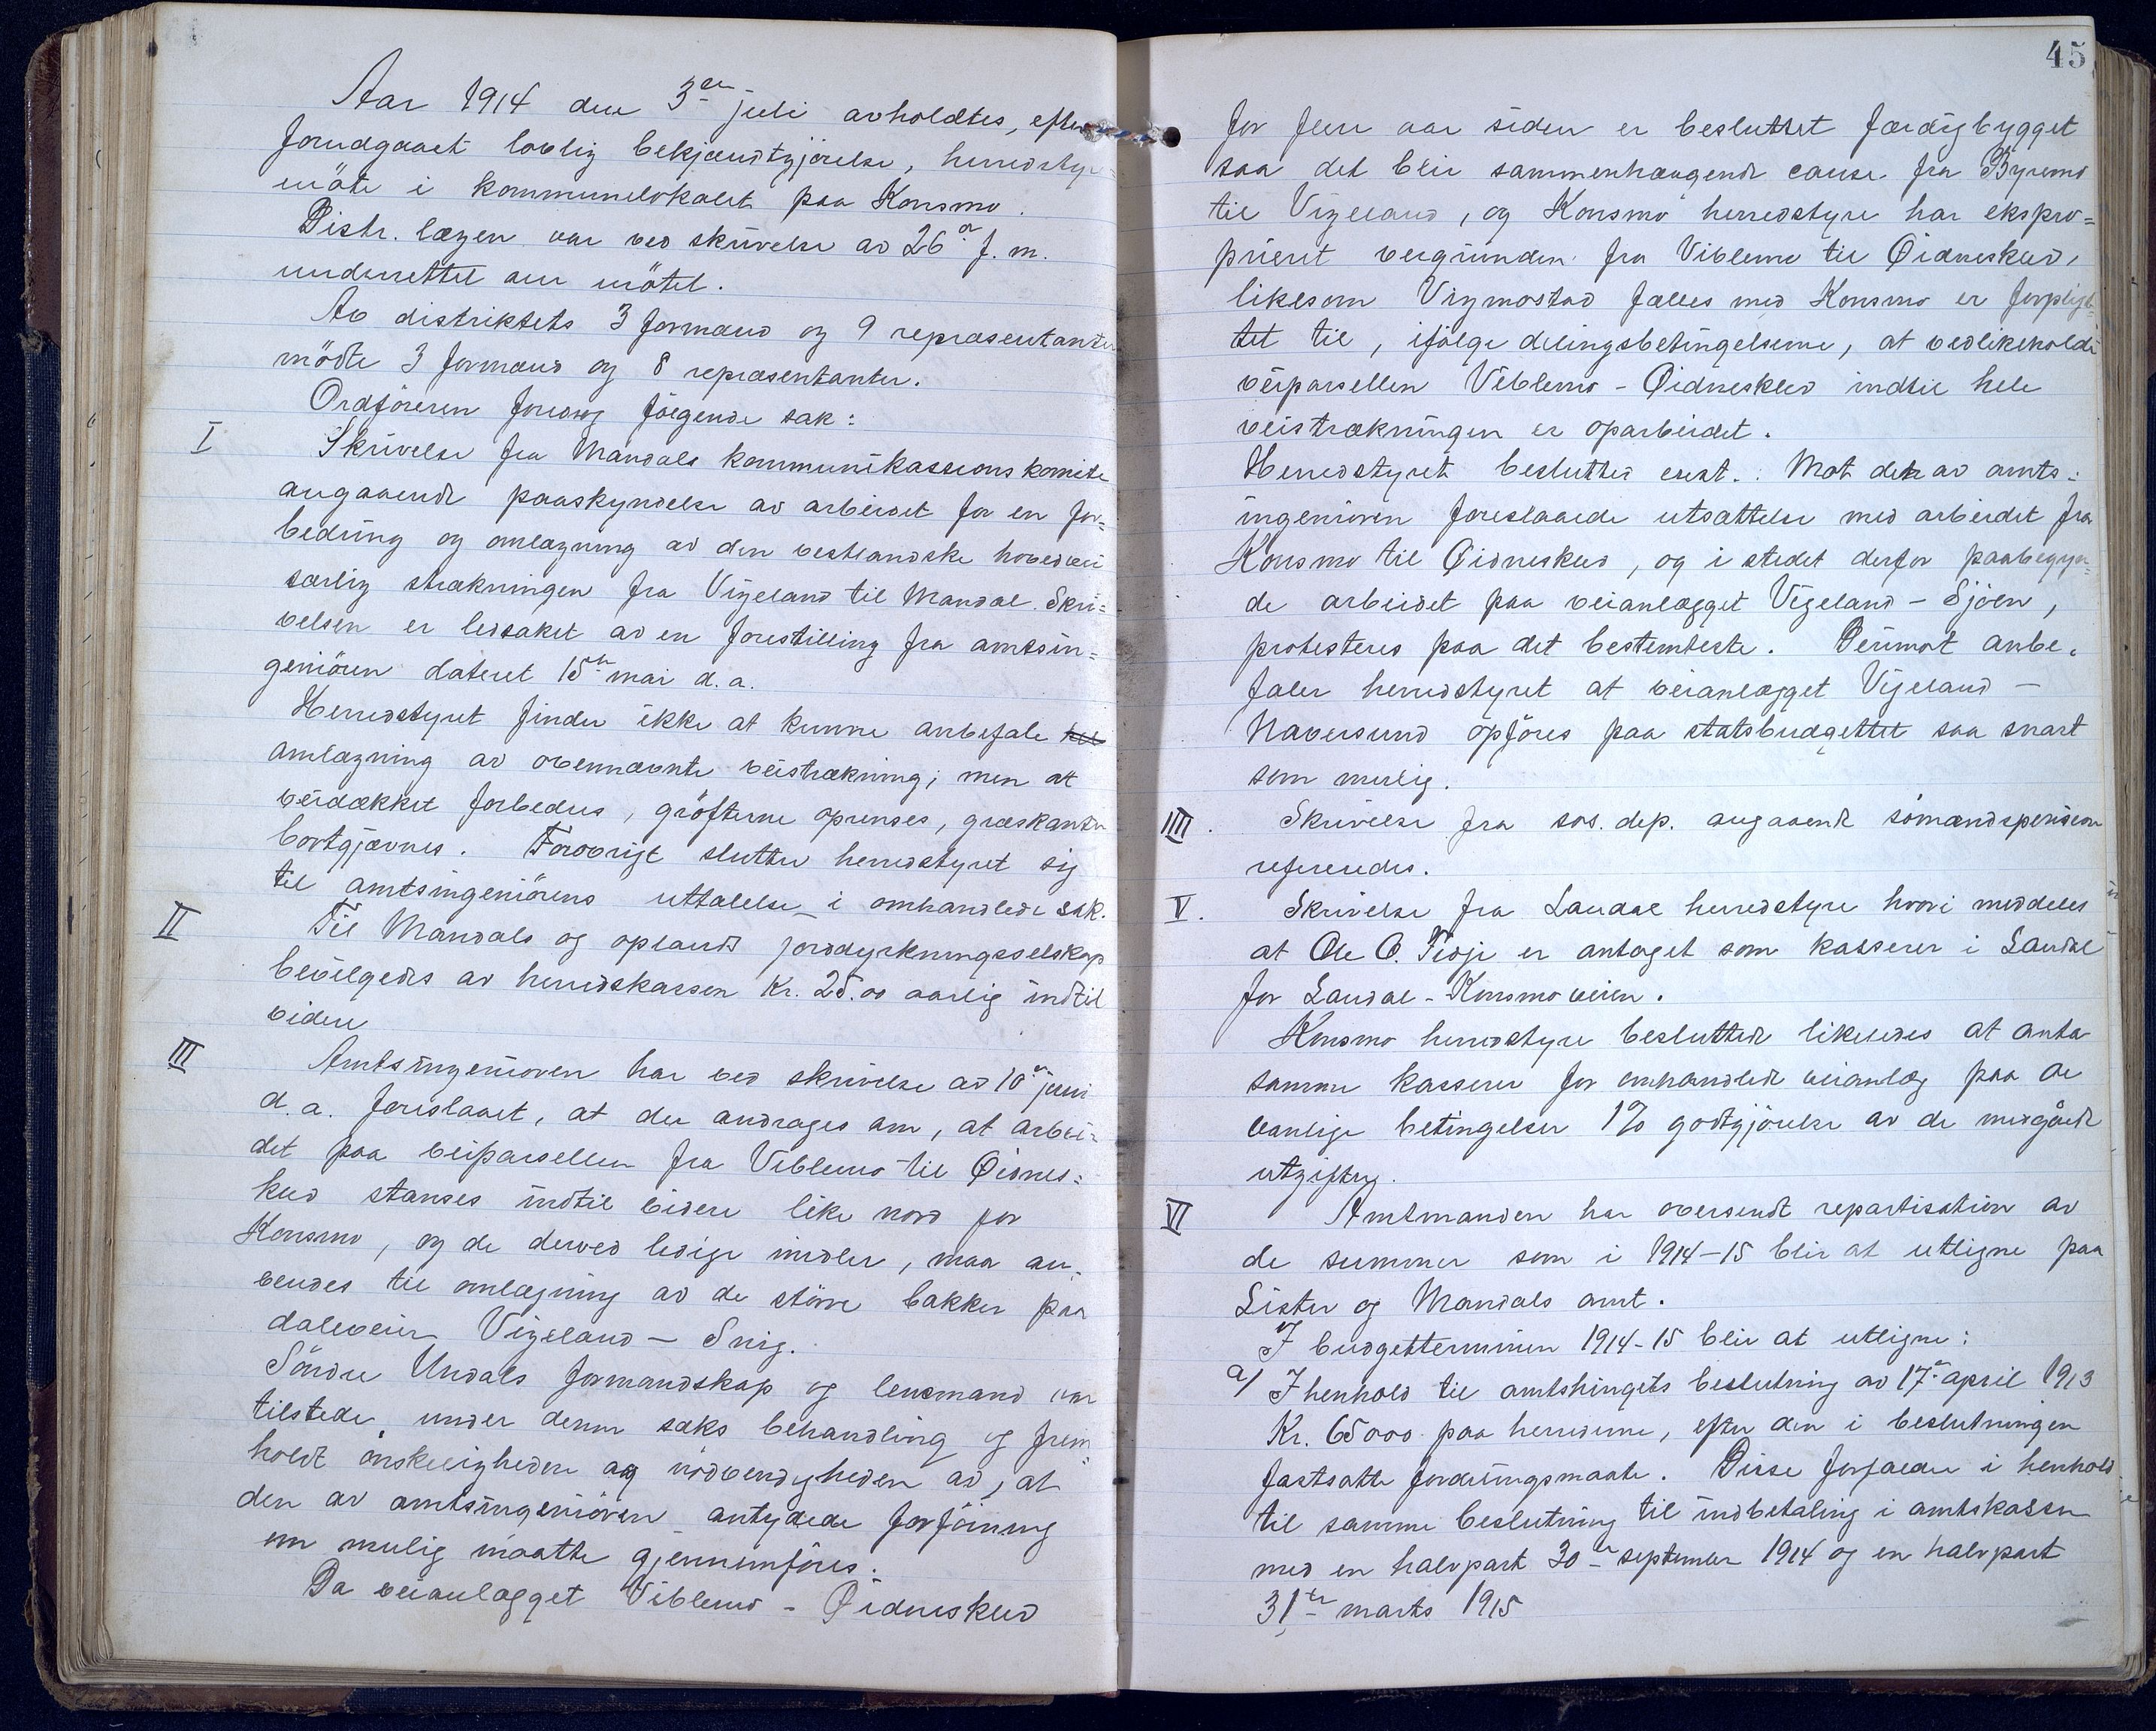 Aar 1914 den 3die juli avholdtes, efter
forudgaaet lovlig bekjendtgjørelse, herredstyre-
møte i kommunelokalet paa Konsmo.
Distr. lægen var ved skrivelse av 26de f. m.
underrettet om møtet.
Av distriktets 3 formænd og 9 repræsentanter
mødte 3 formænd og 8 repræsentanter.
Ordføreren foredrog følgende sak:
I Skrivelse fra Mandals kommunikassions komite
angaaende paaskyndelse av arbeidet for en for=
bedring og omlægning av den vestlandske hovedvei
særlig strækningen fra Vigeland til Mandal. Skri=
velsen er ledsaket av en forestilling fra amtsin=
geniøren dateret 15de mai d.a.
Herredstyret finder ikke at kunne anbefale
omlægning av ovennævnte veistrækning; men at
veidækket forbedres, grøfterne oprenses, græskanter
bortgjævnes. Forøvrigt slutter herredstyret sig
til amtsingeniørens uttalelse i omhandlede sak.
II Til Mandals og oplands jorddyrkningsselskap
bevilgedes av herredskassen Kr. 25.00 aarlig indtil
videre
III Amtsingeniøren har ved skrivelse av 10de juni
d.a. foreslaaet, at der andrages om, at arbei=
det paa veiparsellen fra Viblemo til Øidnes=
kled stanses indtil videre like nord for
Konsmo, og de derved ledige midler, maa an=
vendes til omlægning av de større bakker paa
daleveien Vigeland – Snig.
Søndre Undals formandskap og lensmand var
tilstede under denne saks behandling og frem
holdt ønskeligheden og nødvendigheden av, at
den av amtsingeniøren antydede forføining
om mulig maatte gjennemføres.
Da veianlægget Viblemo – Øidneskled
45
for flere aar siden er besluttet færdigbygget
saa det blir sammenhængende cause fra Byremo
til Vigeland, og Konsmo herredstyre har ekspro=
prieret veigrunden fra Viblemo til Øidneskled,
likesom Vigmostad fælles med Konsmo er forplig=
tet til, ifølge delingsbetingelserne, at vedlikeholde
veiparsellen Viblemo – Øidnesklev indtil hele
veistrækningen er oparbeidet.
Herredstyret beslutted enst.: Mot den av amts=
ingeniøren foreslaaede utsættelse med arbeidet fra
Konsmo til Øidneskled, og i stedet derfor paabegyn=
de arbeidet paa veianlægget Vigeland – Sjøen,
protesteres paa det bestemteste. Derimot anbe=
faler herredstyret at veianlægget Vigeland –
Naversund opføres paa statsbudgettet saa snart
som mulig.
IIII. Skrivelse fra sos. dep. angaaende sømandspension
refereredes.
V. Skrivelse fra Laudal herredstyre hvori meddeles
at Ole O. Tidje er antaget som kasserer i Laudal
for Laudal – Konsmoveien.
Konsmo herredstyre besluttede likeledes at anta
samme kasserer for omhandlede veianlæg paa de
vanlige betingelser 1% godtgjørelse av de medgåede
utgifter.
VI Amtmanden har oversendt repartisation av
de summer som i 1914–15 blir at utligne paa
Lister og Mandals amt.
I budgetterminen 1914–15 blir at utligne:
a/ I henhold til amtstingets beslutning av 17de april 1913
Kr. 65000 paa herrederne, efter den i beslutningen
fastsatte fordelingsmaate. Disse forfalder i henhold
til samme beslutning til indbetaling i amtskassen
med en halvpart 30te september 1914 og en halvpart
31te marts 1915